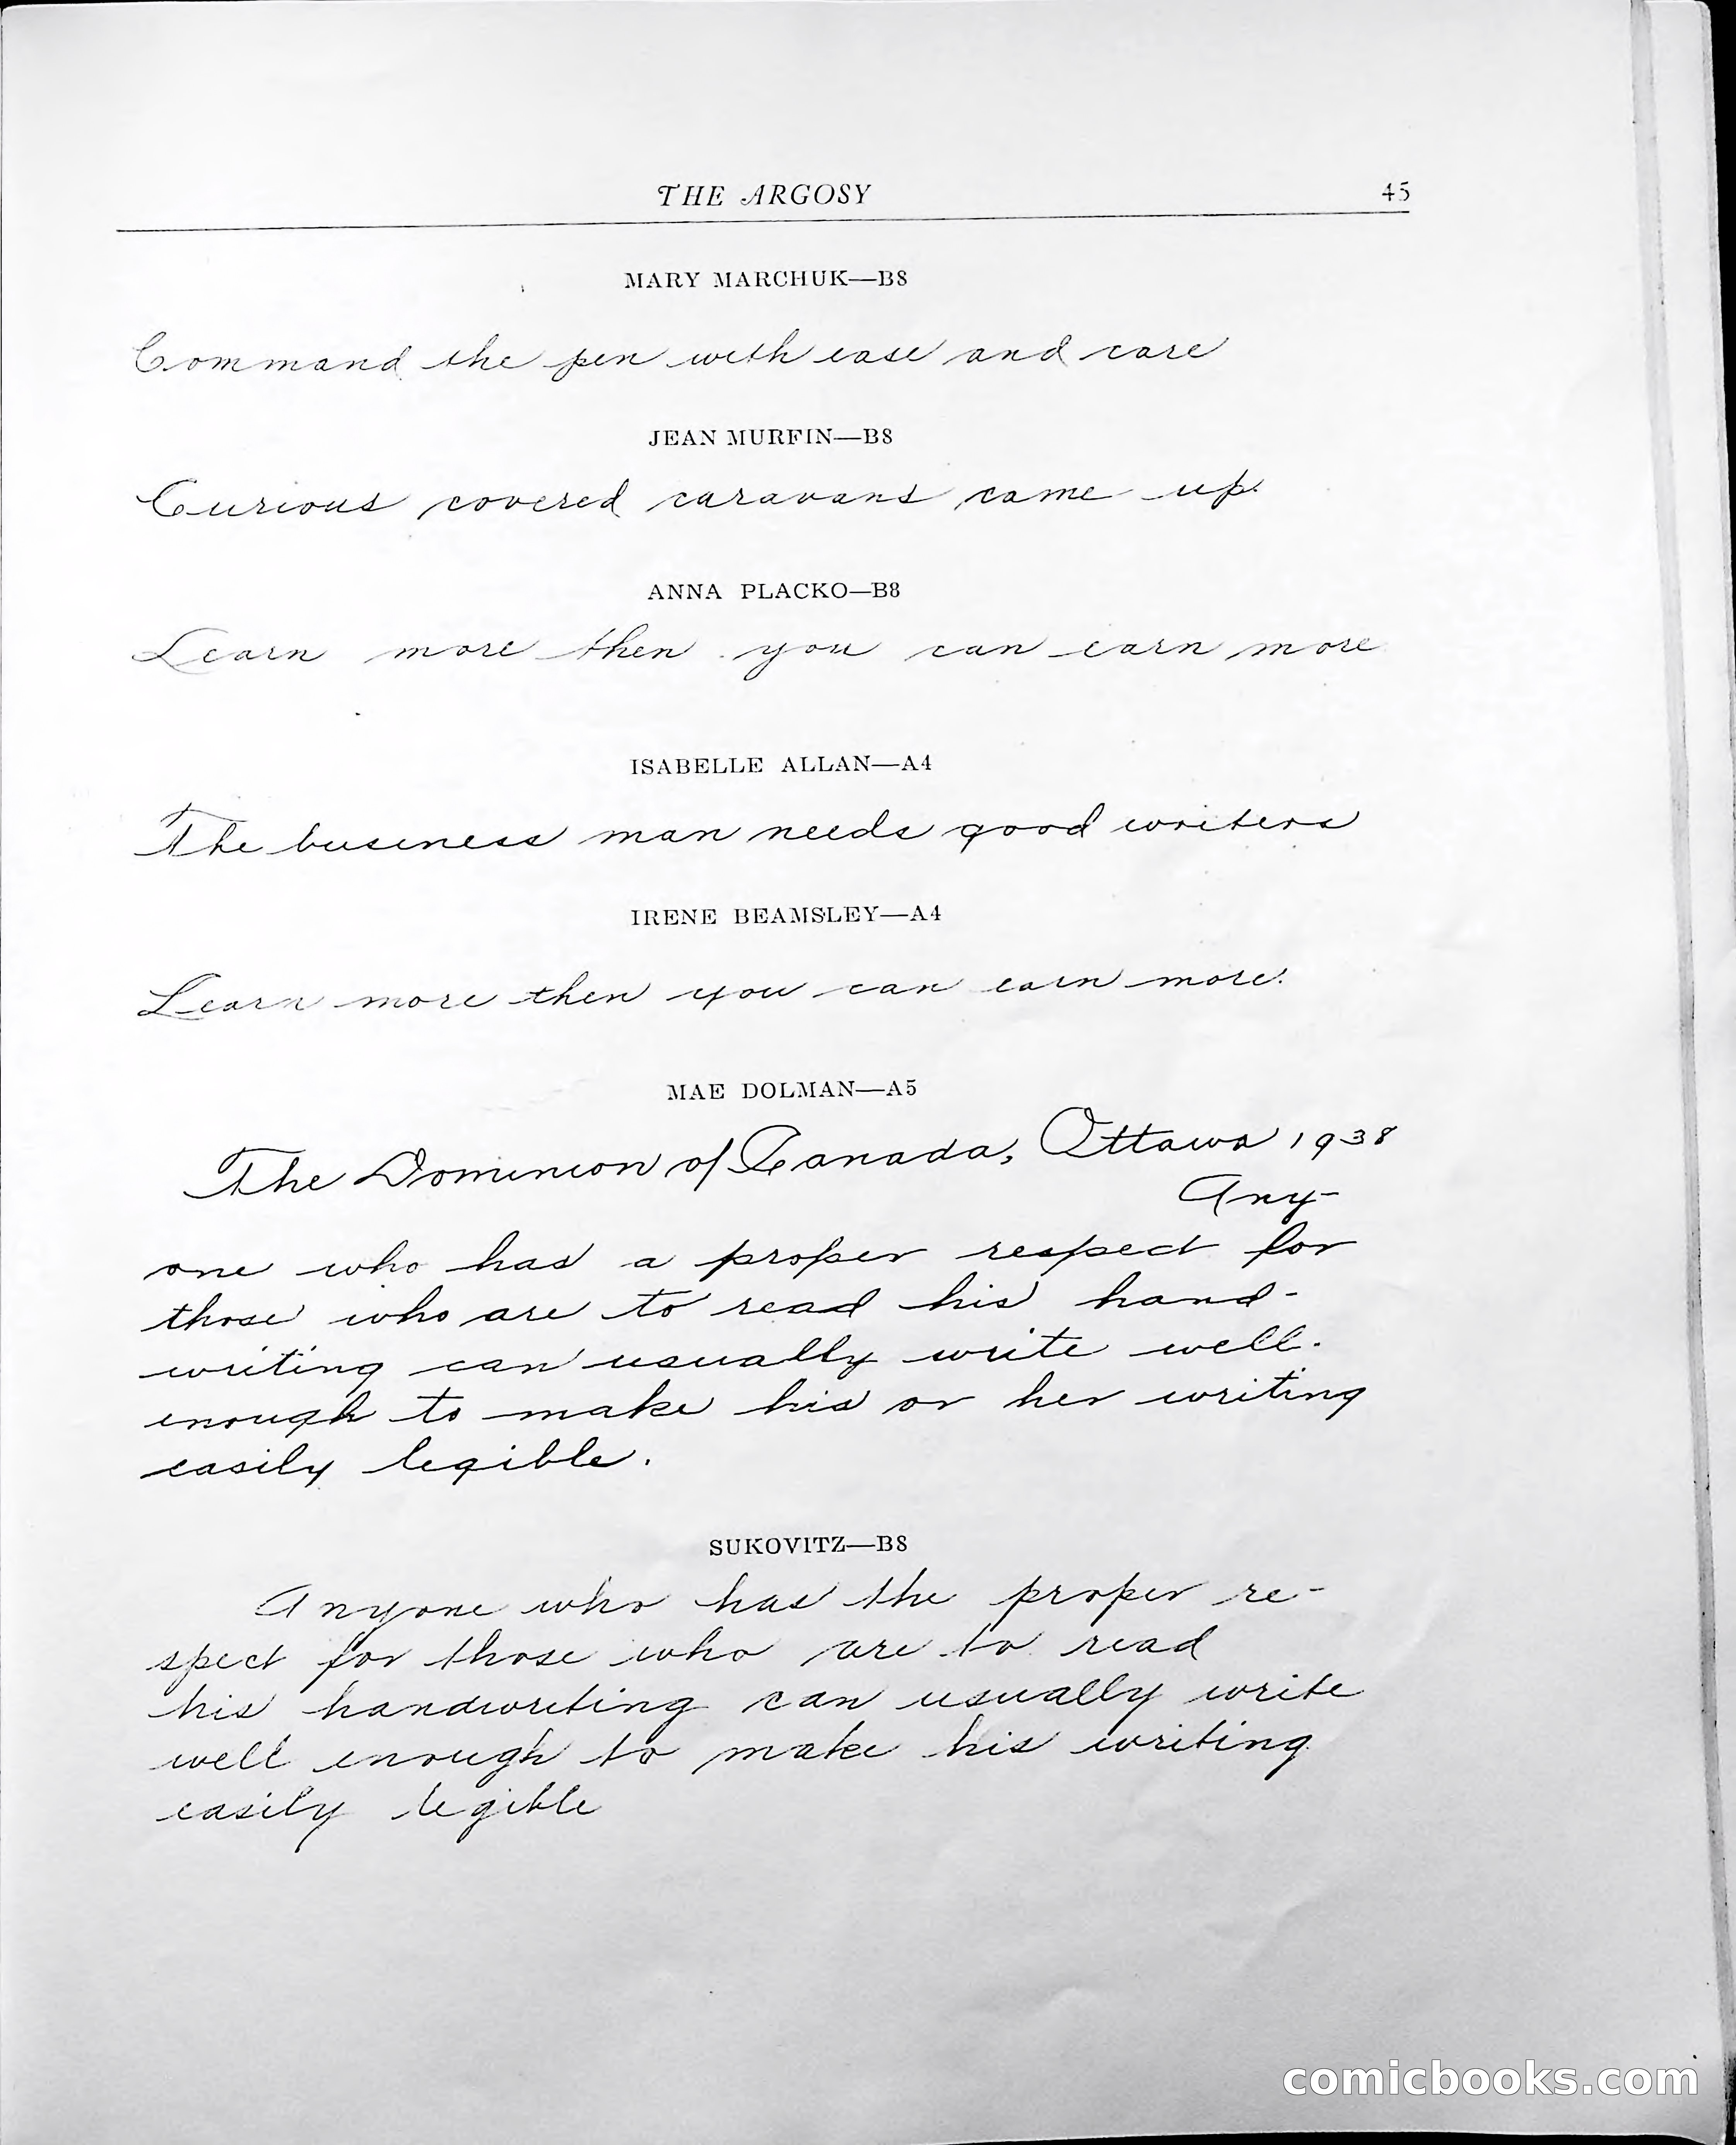 THE ARGOSY 45
MARY MARCHUK—B8
Command the pen with ease and care
JEAN MURFIN—B8
Curious covered caravans came up.
ANNA PLACKO—B8
Learn more then you can earn more
ISABELLE ALLAN—A4
The business man needs good writers
IRENE BEAMSLEY—A4
Learn more then you can earn more.
MAE DOLMAN—A5
The Dominion of Canada, Ottawa 1938
Any-
one who has a proper respect for
those who are to read his hand-
writing can usually write well.
enough to make his or her writing
easily legible.
SUKOVITZ—B8
Anyone who has the proper re-
spect for those who are to read
his handwriting can usually write
well enough to make his writing
easily legible
comicbooks.com